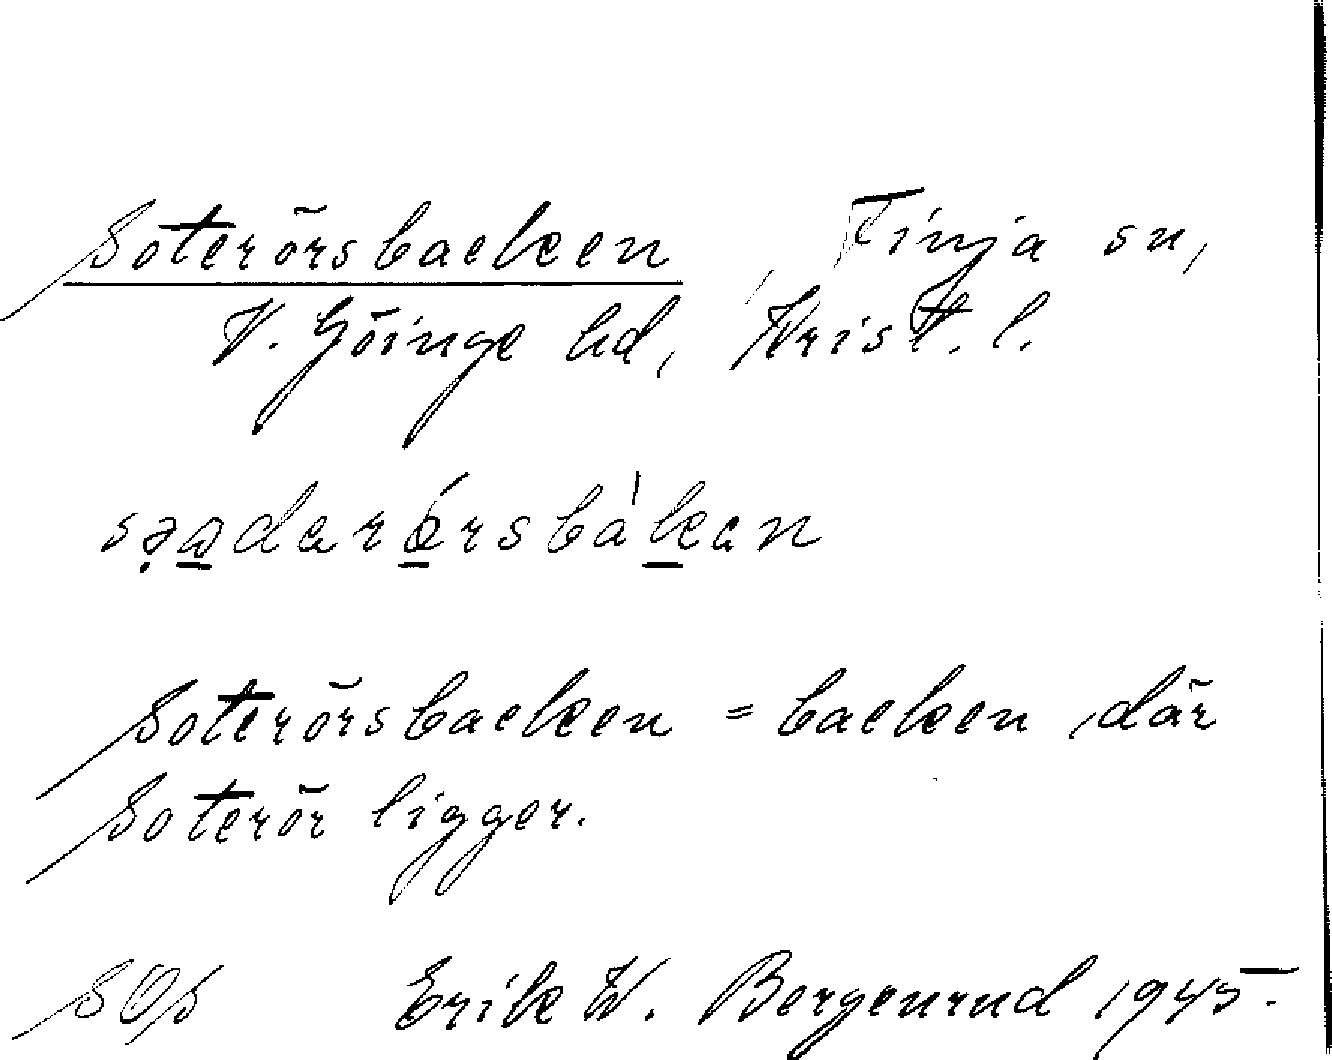 Soterörsbacken, Finja sn,
V. Göinge hd, Krist. l.
Soterörsbacken = backen, där
Soterör ligger.
SOS Erik W. Bergenrud 1945.